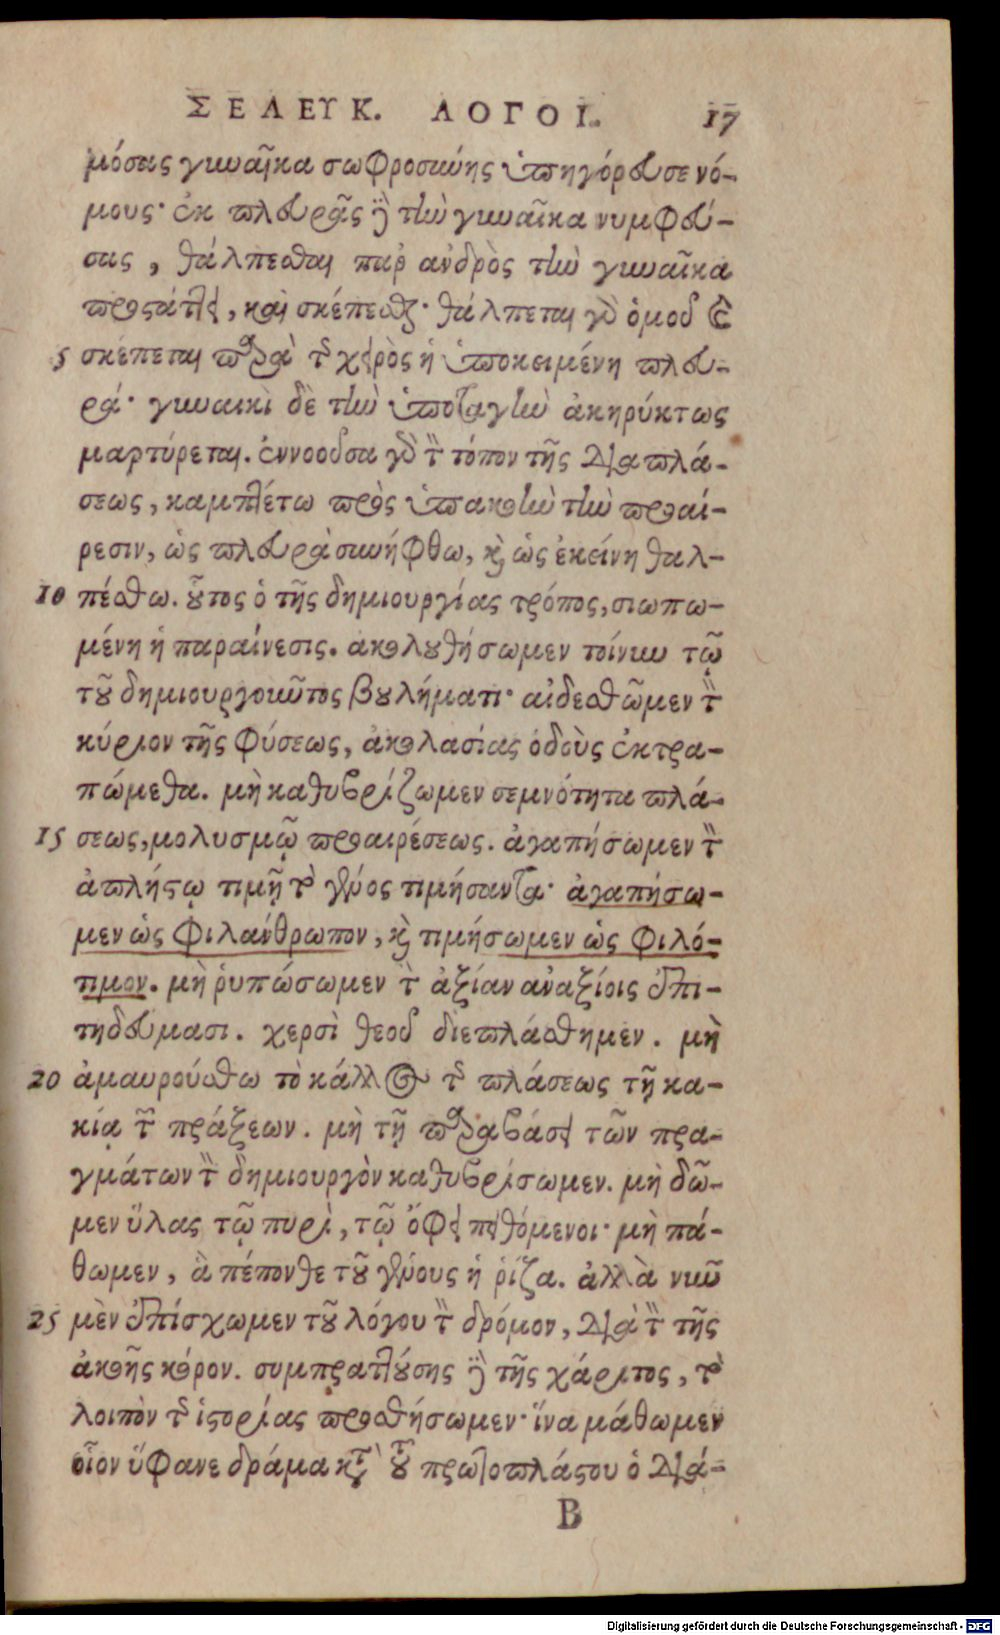 ΣΕΛΕΥΚ. ΛΟΓΟΙ. 17
μόσας γυναῖκα σωφροσύνης ὑπηγόρευσε νό-
μους· ἐκ πλευρᾶς δὲ τὴν γυναῖκα νυμφεύ-
σας, θάλπεσθαι παρ' ἀνδρὸς τὴν γυναῖκα
προστάττει, καὶ σκέπεσθαι· θάλπεται γὰρ ὁμοῦ καὶ
5 σκέπεται παρὰ τῆς χειρὸς ἡ ὑποκειμένη πλευ-
ρά· γυναικὶ δὲ τὴν ὑποταγὴν ἀκηρύκτως
μαρτύρεται. ἐννοοῦσα γὰρ τὸν τόπον τῆς διαπλά-
σεως, καμπτέτω πρὸς ὑπακοὴν τὴν προαί-
ρεσιν, ὡς πλευρὰ συνήφθω, καὶ ὡς ἐκείνη θαλ-
10 πέσθω. οὗτος ὁ τῆς δημιουργίας τρόπος, σιωπω-
μένη ἡ παραίνεσις. ἀκολουθήσωμεν τοίνυν τῷ
τοῦ δημιουργοῦντος βουλήματι· αἰδεσθῶμεν τὸν
κύριον τῆς φύσεως, ἀκολασίας ὁδοὺς ἐκτρα-
πώμεθα. μὴ καθυβρίζωμεν σεμνότητα πλά-
15 σεως, μολυσμῷ προαιρέσεως. ἀγαπήσωμεν τὸν
ἀπλήστῳ τιμῇ τὸ γένος τιμήσαντα· ἀγαπήσω-
μεν ὡς φιλάνθρωπον, καὶ τιμήσωμεν ὡς φιλό-
τιμον. μὴ ῥυπώσωμεν τὴν ἀξίαν ἀναξίοις ἐπι-
τηδεύμασι. χερσὶ θεοῦ διεπλάσθημεν. μὴ
20 ἀμαυρούσθω τὸ κάλλος τῆς πλάσεως τῇ κα-
κίᾳ τῶν πράξεων. μὴ τῇ παραβάσει τῶν πρα-
γμάτων τὸν δημιουργὸν καθυβρίσωμεν. μὴ δῶ-
μεν ὕλας τῷ πυρὶ, τῷ ὄφει πειθόμενοι· μὴ πά-
θωμεν, ἃ πέπονθε τοῦ γένους ἡ ῥίζα. ἀλλὰ νῦν
25 μὲν ἐπίσχωμεν τοῦ λόγου τὸν δρόμον, διὰ τὸν τῆς
ἀκοῆς κόρον. συμπραττούσης δὲ τῆς χάριτος, τὸ
λοιπὸν τῆς ἱστορίας προσθήσωμεν· ἵνα μάθωμεν
οἷον ὕφανε δράμα κατὰ τοῦ πρωτοπλάστου ὁ διά-
B
Digitalisierung gefördert durch die Deutsche Forschungsgemeinschaft - DFG